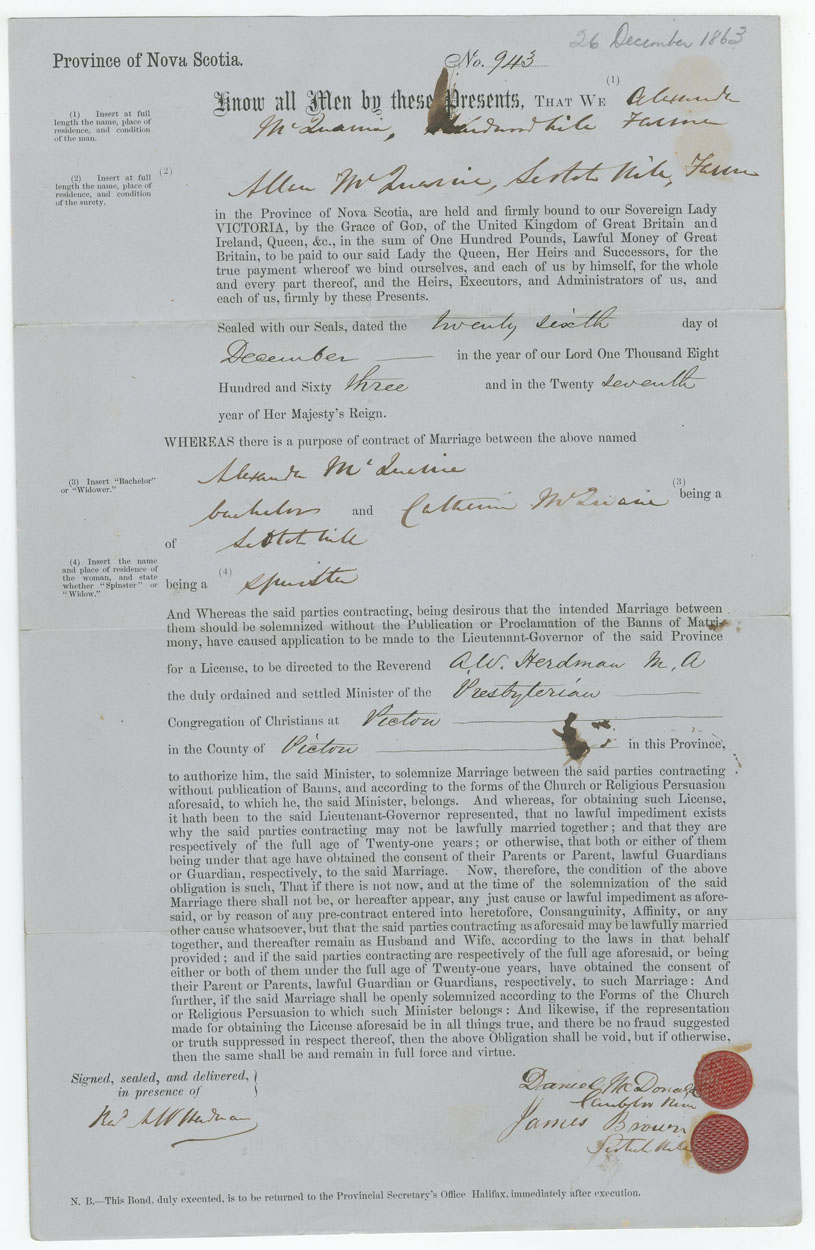 26 December 1863
Province of Nova Scotia.
No. 943
Know all Men by these Presents, THAT WE (1) Alexander
(1) Insert at full
length the name, place of
residence, and condition
of the man.
McQuarrie, Hardwood hill Farmer
(2) Insert at full
length the name, place of
residence, and condition
of the surety.
(2)
Allen McQuarrie, Scotch Hill, Farmer
in the Province of Nova Scotia, are held and firmly bound to our Sovereign Lady
VICTORIA, by the Grace of GOD, of the United Kingdom of Great Britain and
Ireland, Queen, &c., in the sum of One Hundred Pounds, Lawful Money of Great
Britain, to be paid to our said Lady the Queen, Her Heirs and Successors, for the
true payment whereof we bind ourselves, and each of us by himself, for the whole
and every part thereof, and the Heirs, Executors, and Administrators of us, and
each of us, firmly by these Presents.
Sealed with our Seals, dated the twenty sixth day of
December in the year of our Lord One Thousand Eight
Hundred and Sixty three and in the Twenty seventh
year of Her Majesty's Reign.
WHEREAS there is a purpose of contract of Marriage between the above named
Alexander McQuarrie
(3) Insert "Bachelor"
or "Widower."
(3) being a
bachelor and Catherine McQuarrie
of Scotch hill
(4) Insert the name
and place of residence of
the woman, and state
whether "Spinster" or
"Widow."
being a (4) spinster
And Whereas the said parties contracting, being desirous that the intended Marriage between
them should be solemnized without the Publication or Proclamation of the Banns of Matri-
mony, have caused application to be made to the Lieutenant-Governor of the said Province
for a License, to be directed to the Reverend A.W. Herdman M.A
the duly ordained and settled Minister of the Presbyterian
Congregation of Christians at Pictou
in the County of Pictou in this Province,
to authorize him, the said Minister, to solemnize Marriage between the said parties contracting
without publication of Banns, and according to the forms of the Church or Religious Persuasion
aforesaid, to which he, the said Minister, belongs. And whereas, for obtaining such License,
it hath been to the said Lieutenant-Governor represented, that no lawful impediment exists
why the said parties contracting may not be lawfully married together; and that they are
respectively of the full age of Twenty-one years; or otherwise, that both or either of them
being under that age have obtained the consent of their Parents or Parent, lawful Guardians
or Guardian, respectively, to the said Marriage. Now, therefore, the condition of the above
obligation is such, That if there is not now, and at the time of the solemnization of the said
Marriage there shall not be, or hereafter appear, any just cause or lawful impediment as afore-
said, or by reason of any pre-contract entered into heretofore, Consanguinity, Affinity, or any
other cause whatsoever, but that the said parties contracting as aforesaid may be lawfully married
together, and thereafter remain as Husband and Wife, according to the laws in that behalf
provided; and if the said parties contracting are respectively of the full age aforesaid, or being
either or both of them under the full age of Twenty-one years, have obtained the consent of
their Parent or Parents, lawful Guardian or Guardians, respectively, to such Marriage: And
further, if the said Marriage shall be openly solemnized according to the Forms of the Church
or Religious Persuasion to which such Minister belongs: And likewise, if the representation
made for obtaining the License aforesaid be in all things true, and there be no fraud suggested
or truth suppressed in respect thereof, then the above Obligation shall be void, but if otherwise,
then the same shall be and remain in full force and virtue.
Signed, sealed, and delivered,
in presence of
Revd A W Herdman
Daniel McDonald
James Brown
Scotch Hill
N. B.—This Bond, duly executed, is to be returned to the Provincial Secretary's Office Halifax, immediately after execution.